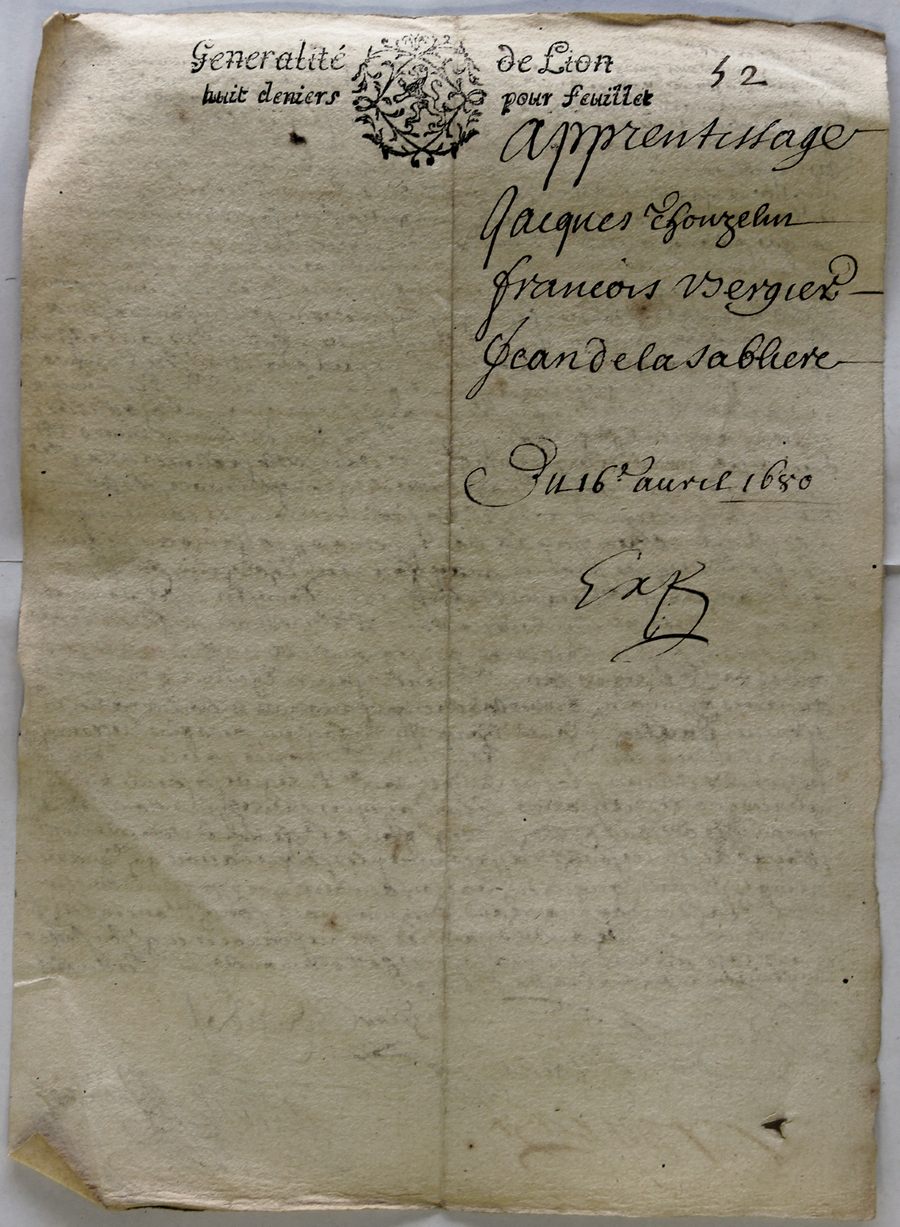 Generalité de Lion
huit deniers pour feuillet
52
Apprentissage
Jacques Thouzelin
francois Vergier
Jean de la Sabliere
Du 16e avril 1680